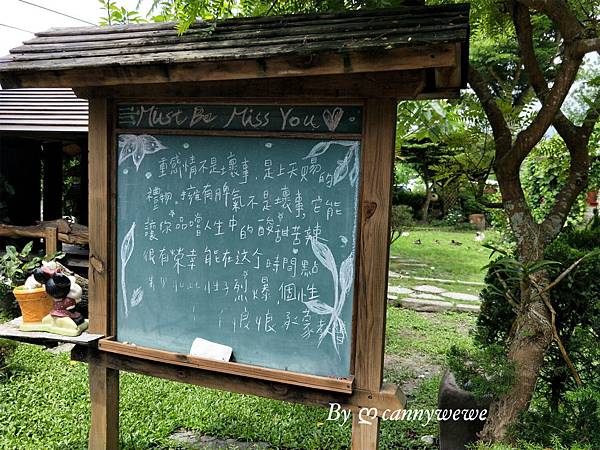 Must Be Miss You
重感情不是壞事,是上天賜的
禮物。擁有脾氣不是壞事,它能
讓你品嚐人生中的酸甜苦辣
很有榮幸能在这个時間點
烈爆,個性
狠狠
By ღ cannywewe